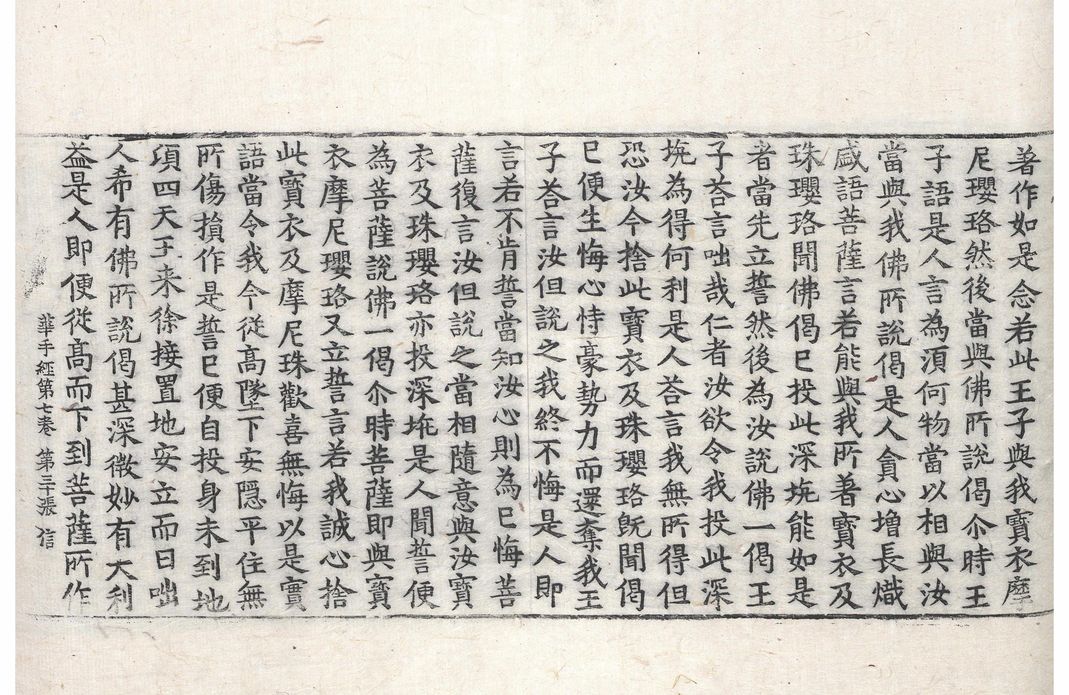 著作如是念若此王子與我寶衣摩
尼瓔珞然後當與佛所說偈尒時王
子語是人言為湏何物當以相與汝
當與我佛所說偈是人貪心增長熾
盛語菩薩言若能與我所著寶衣及
珠瓔珞聞佛偈巳投此深坑能如是
者當先立誓然後為汝說佛一偈王
子荅言咄哉仁者汝欲令我投此深
坑為得何利是人荅言我無所得但
恐汝今捨此寶衣及珠瓔珞旣聞偈
巳便生悔心恃豪勢力而還奪我王
子荅言汝但說之我終不悔是人即
言若不肯誓當知汝心則為巳悔菩
薩復言汝但說之當相隨意與汝寶
衣及珠瓔珞亦投深坑是人聞誓便
為菩薩說佛一偈尒時菩薩即與寶
衣摩尼瓔珞又立誓言若我誠心捨
此寶衣及摩尼珠歡喜無悔以是實
語當令我今従高墜下安隱平住無
所傷損作是誓巳便自投身未到地
湏四天王来徐接置地安立而曰咄
人希有佛所說偈甚深微妙有大利
益是人即便従髙而下到菩薩所作
華手經第七卷 第三十張 信